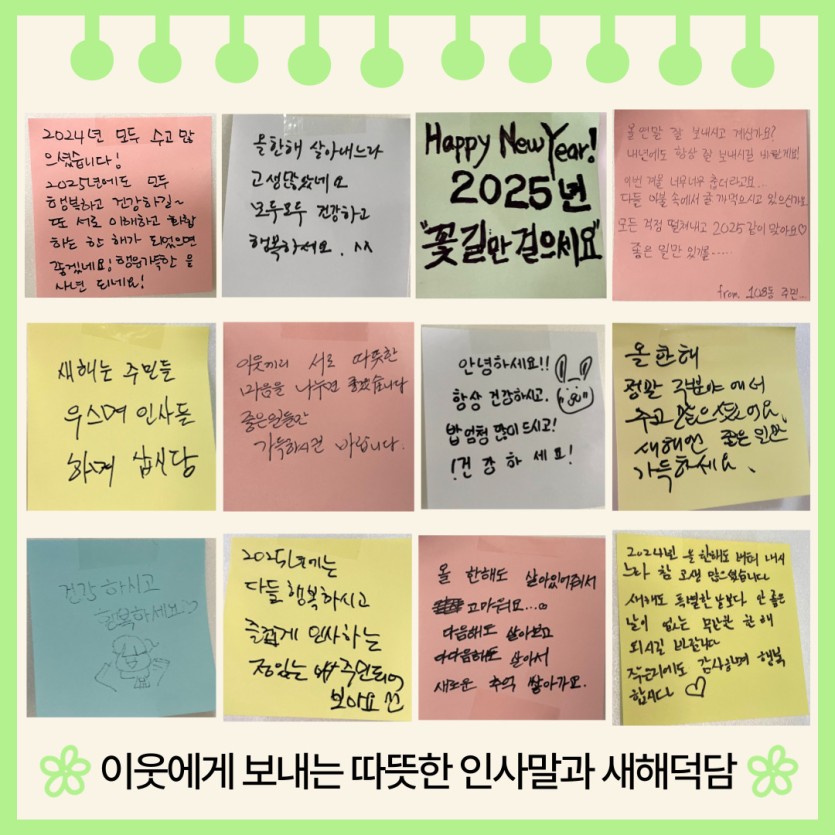 2024년 모두 수고 많
으셨습니다!
2025년에도 모두
행복하고 건강하길~
또 서로 이해하고 화합
하는 한 해가 되었으면
좋겠네요! 행운가득한 을
사년 되세요!
올한해 살아내느라
고생많았네요
모두모두 건강하고
행복하세요. ^^
Happy New Year!
2025년
"꽃길만 걸으세요"
올 연말 잘 보내시고 계신가요?
내년에도 항상 잘 보내시길 바랄게요!
이번 겨울 너무너무 춥더라고요..
다들 이불 속에서 귤 까먹으시고 있으신가요
모든 걱정 떨쳐내고 2025 같이 맞아요♡
좋은 일만 있기를.....
from 108동 주민...
새해는 주민들
웃으며 인사들
하며 삽시당
이웃끼리 서로 따뜻한
마음을 나누면 좋겠습니다
좋은일들만
가득하시길 바랍니다.
안녕하세요!!
항상 건강하시고,
밥 엄청 많이 드시고!
!건강하세요!
올 한해
정말 각분야에서
수고 많으셨어요.
새해엔 좋은일만
가득하세요.
건강하시고
행복하세요♡
2025년에는
다들 행복하시고
즐겁게 인사하는
정있는 주민되어
보아요
올 한해도 살아있어줘서
고마워요...
다음해도 살아보고
다다음해도 살아서
새로운 추억 쌓아가요.
2024년 올 한해도 버텨 내시
느라 참 고생 많으셨습니다
새해도 특별한 날보다 안 좋은
날이 없는 무난한 한 해
되시길 바랍니다
작은것에도 감사하며 행복
합시다 ♡
이웃에게 보내는 따뜻한 인사말과 새해덕담